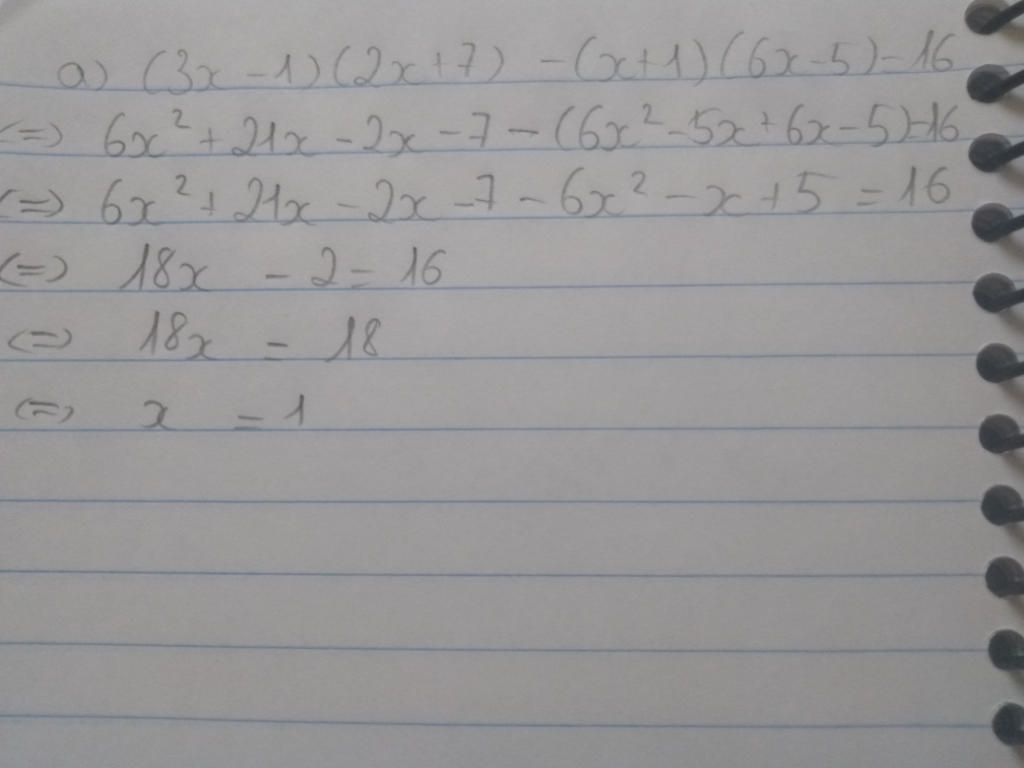 a) (3x - 1)(2x+7) - (x+1)(6x-5)=16
(=) 6x² + 21x - 2x - 7 - (6x² - 5x + 6x - 5)=16
(=) 6x² + 21x - 2x - 7 - 6x² - x + 5 = 16
(=) 18x - 2 = 16
(=) 18x = 18
(=) x = 1